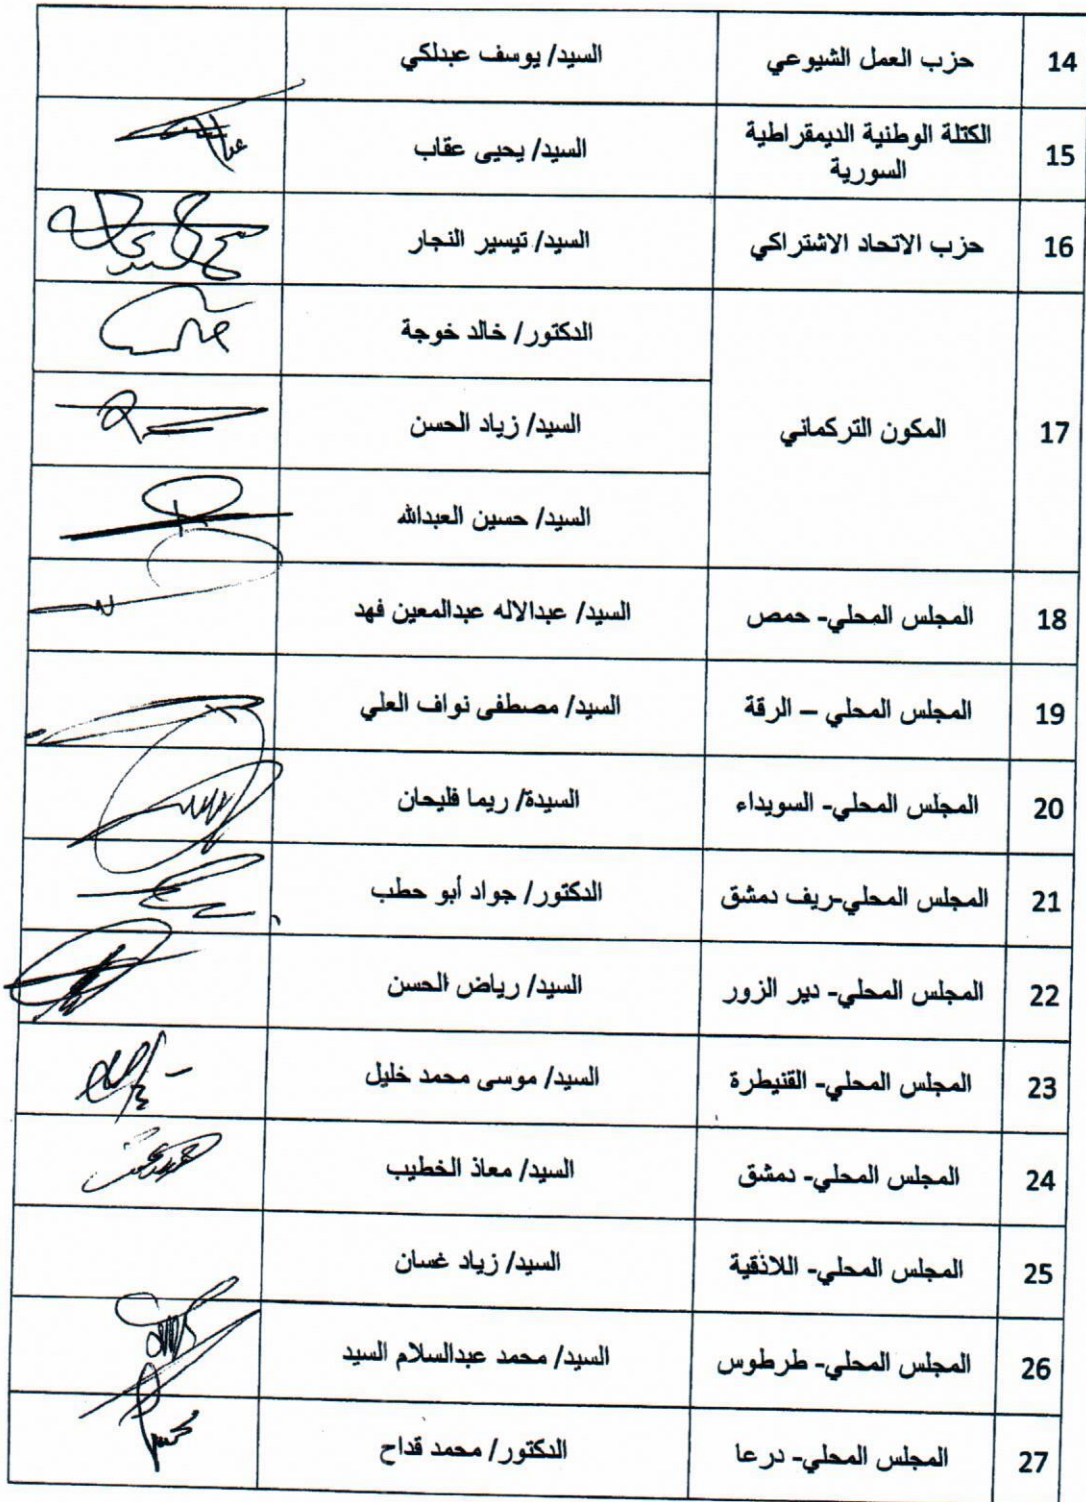 14 حزب العمل الشيوعي السيد/ يوسف عبدلكي
15 الكتلة الوطنية الديمقراطية السورية السيد/ يحيى عقاب
16 حزب الاتحاد الاشتراكي السيد/ تيسير النجار
17 المكون التركماني الدكتور/ خالد خوجة
السيد/ زياد الحسن
السيد/ حسين العبدالله
18 المجلس المحلي- حمص السيد/ عبدالاله عبدالمعين فهد
19 المجلس المحلي – الرقة السيد/ مصطفى نواف العلي
20 المجلس المحلي- السويداء السيدة/ ريما فليحان
21 المجلس المحلي-ريف دمشق الدكتور/ جواد أبو حطب
22 المجلس المحلي- دير الزور السيد/ رياض الحسن
23 المجلس المحلي- القنيطرة السيد/ موسى محمد خليل
24 المجلس المحلي- دمشق السيد/ معاذ الخطيب
25 المجلس المحلي- اللاذقية السيد/ زياد غسان
26 المجلس المحلي- طرطوس السيد/ محمد عبدالسلام السيد
27 المجلس المحلي- درعا الدكتور/ محمد قداح